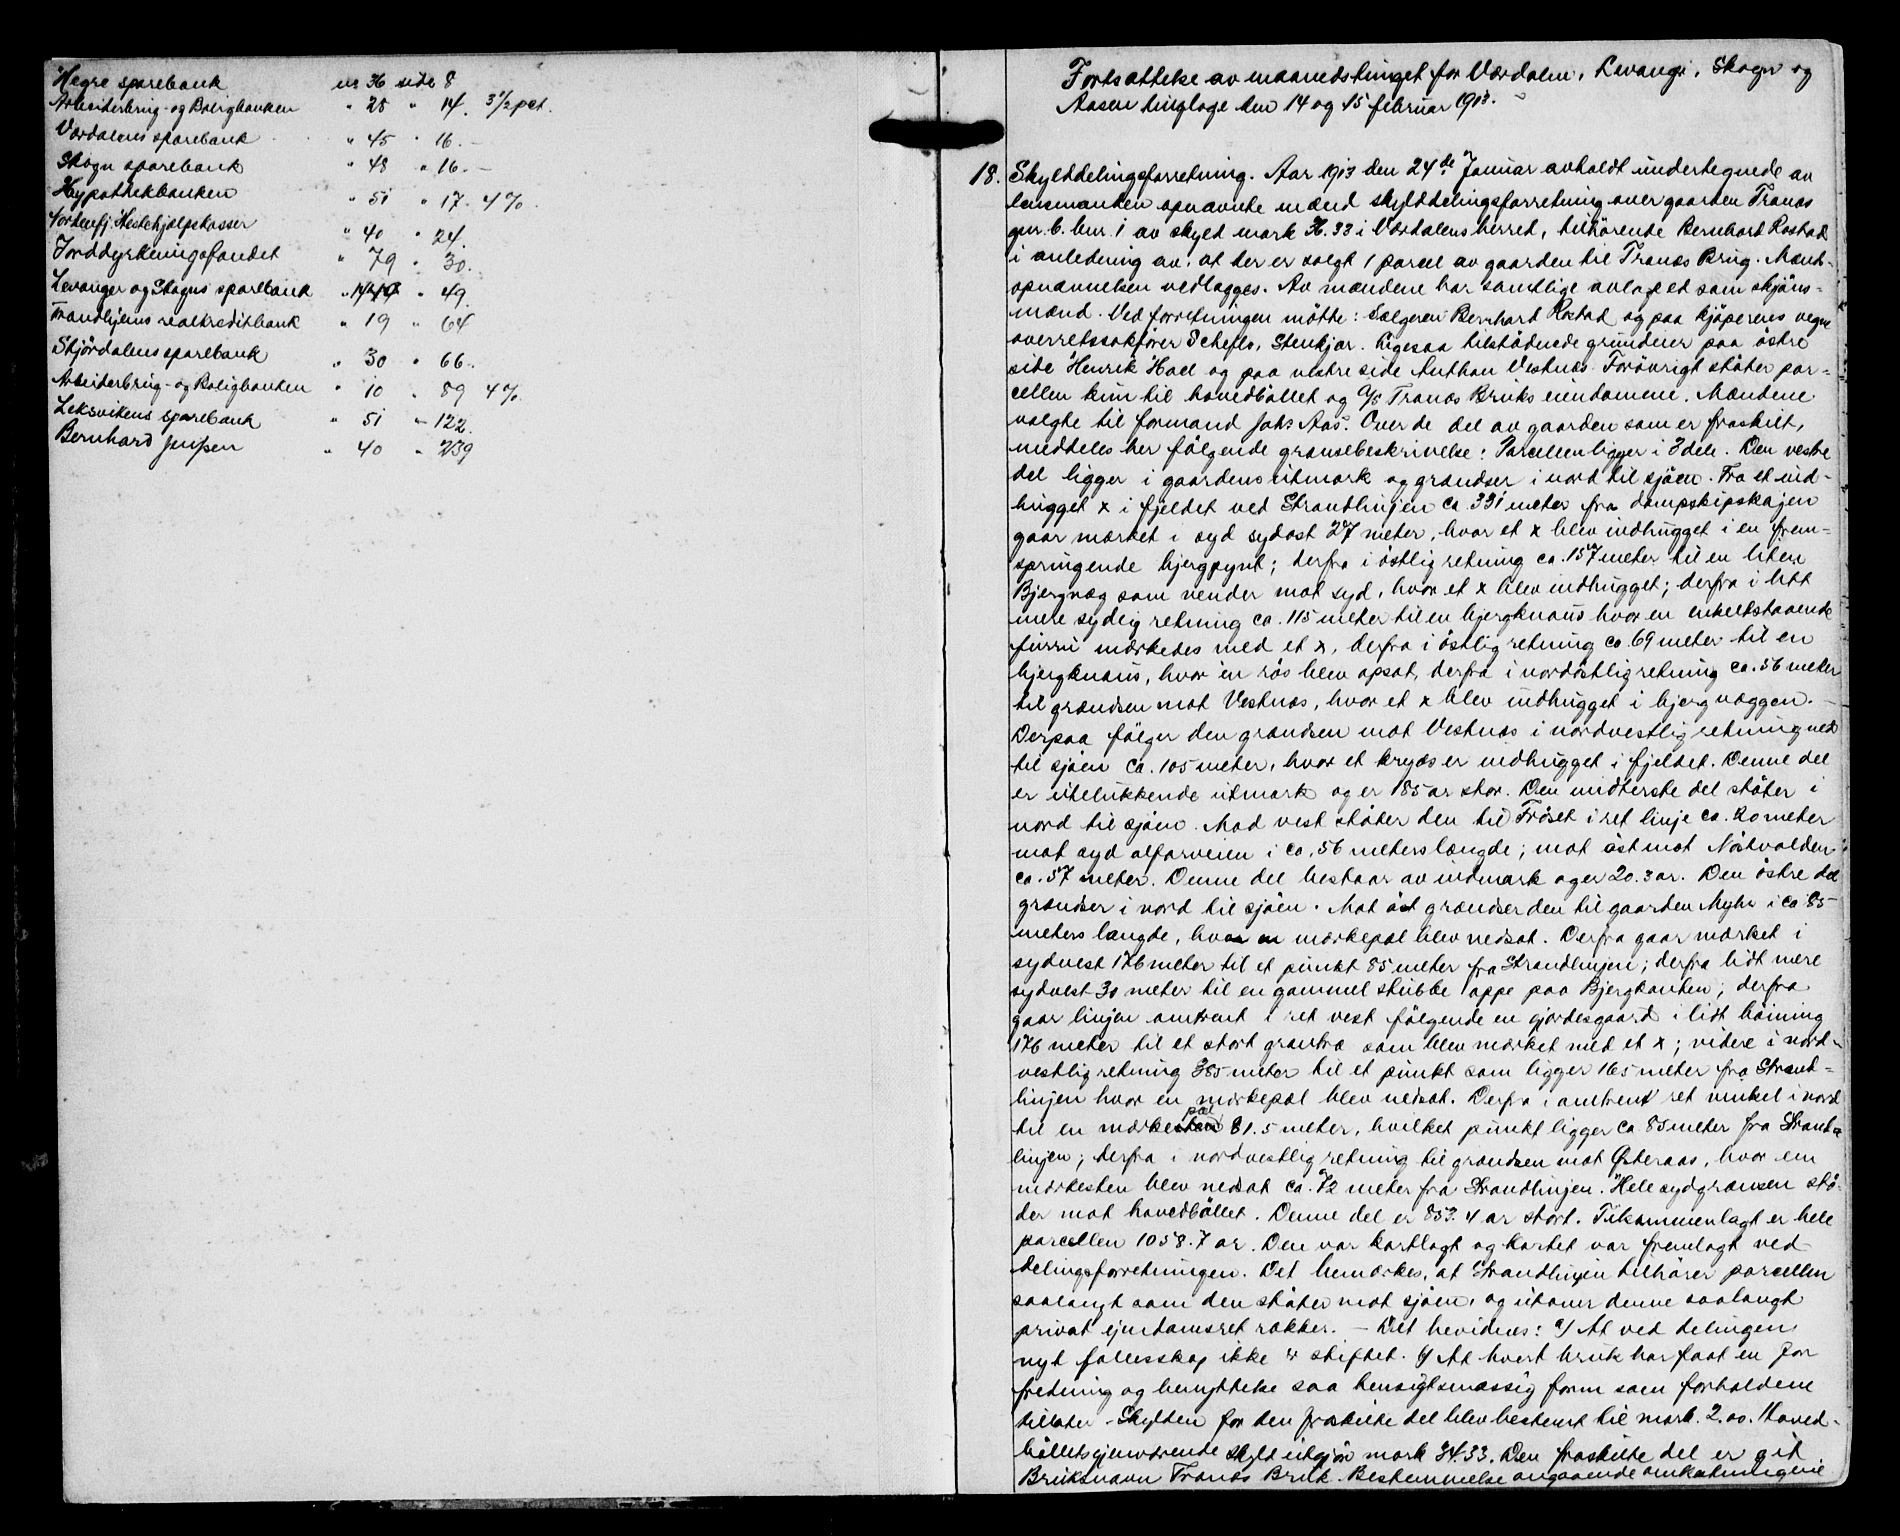 Hegre sparebank nr 36 side 8
Arbeiderbrug- og Boligbanken " 25 " 14. 3½ pct.
Værdalens sparebank " 45 " 16. -
Skogn sparebank " 48 " 16. -
Hypothekbanken " 51 " 17. 4 %.
Nordenfj. Hestehjælpskasser " 40 " 24.
Jorddyrkningsfondet " 79 " 30.
Levanger og Skogns sparebank " " 49.
Trondhjems realkreditbank " 19 " 64
Stjördalens sparebank " 30 " 66.
Arbeiderbrug- og Boligbanken " 10 " 89 4 %.
Leksvikens sparebank " 51 " 122.
Bernhard Jenssen " 40 " 239
Fortsættelse av maanedstinget for Værdalen, Levanger, Skogn og
Aasen tinglage den 14 og 15 februar 1913.
18. Skylddelingsforretning. Aar 1913 den 24de Januar avholdt undertegnede av
lensmanden opnævnte mænd skylddelingsforretning over gaarden Tranæs
gnr. 6. bnr. 1 av skyld mark 36.33 i Værdalens herred, tilhörende Bernhard Rostad
i anledning av, at der er solgt 1 parcel av gaarden til Tranæs Brug. Mænds-
opnævnelsen vedlægges. Av mændene har samtlige avlagt ed som skjöns-
mænd. Ved forretningen mötte: Sælgeren Bernhard Rostad og paa kjöperens vegne
overretssakförer Scheflo, Stenkjær. Ligesaa tilstödende grundeier paa östre
side Henrik Hoel og paa vestre side Anthon Vestnæs. Forövrigt stöter par-
cellen kun til hovedböllet og A/S Tranæs Bruks eiendomene. Mændene
valgte til formand Johs Aas. Over de del av gaarden som er fraskilt,
meddeles her fölgende grænsebeskrivelse: Parcellen ligger i 3 dele. Den vestre
del ligger i gaardens utmark og grændser i nord til sjöen. Fra et ind-
hugget x i fjeldet ved Strandlinjen ca. 331 meter fra dampskipskajen
gaar mærket i syd sydost 27 meter, hvor et x blev indhugget i en frem-
springende bjergpynt; derfra i östlig retning ca. 157 meter til en liten
Bjergvæg som vender mot syd, hvor et x blev indhugget; derfra i litt
mere sydlig retning ca. 115 meter til en bjergknaus hvor en enkeltstaaende
furru mærkedes med et x, derfra i östlig retning ca. 69 meter til en
bjergknaus, hvor en rös blev opsat, derfra i nordöstlig retning ca. 56 meter
til grændsen mot Vestnæs, hvor et x blev indhugget i bjergvæggen. -
Derpaa fölger den grændsen mot Vestnæs i nordvestlig retning ned
til sjöen ca. 105 meter, hvor et kryds er indhugget i fjeldet. Denne del
er utelukkende utmark og er 185 ar stor. Den midterste del stöter i
nord til sjöen. Mod vest stöter den til Fröset i ret linje ca. 20 meter
mot syd alfarveien i ca. 56 meters længde; mot öst mot Nöstvolden
ca. 57 meter. Denne del bestaar av indmark og er 20.3 ar. Den östre del
grændser i nord til sjöen. Mot öst grændser den til gaarden Myhr i ca 85
meters længde, hvor en mærkepæl blev nedsat. Derfra gaar mærket i
sydvest 176 meter til et punkt 85 meter fra Strandlinjen; derfra lidt mere
sydvest 30 meter til en gammel stubbe oppe paa Bjergkanten; derfra
gaar linjen omtrent i ret vest fölgende en gjerdesgaard i lidt böining
176 meter til et stort grantræ som blev mærket med et x; videre i nord-
vestlig retning 385 meter til et punkt som ligger 165 meter fra Strand-
linjen hvor en mærkepæl blev nedsat. Derfra i omtrent ret vinkel i nord
til en mærkepæl 81.5 meter, hvilket punkt ligger ca 85 meter fra Strand-
linjen; derfra i nordvestlig retning til grændsen mot Østeraas, hvor en
mærkesten blev nedsat ca. 72 meter fra Strandlinjen. Hele sydgrænsen stö-
der mot hovedböllet. Denne del er 853.4 ar stort. Tilsammenlagt er hele
parcellen 1058.7 ar. Den var kartlagt og kartet var fremlagt ved
delingsforretningen. Det bemærkes, at Strandlinjen tilhörer parcellen
saalangt som den stöter mot sjöen, og utover denne saalangt
privat ejendomsret rækker. - Det bevidnes: a/ At ved delingen
nyt fællesskap ikke er stiftet. b/ At hvert bruk har faat en for
fredning og benyttelse saa hensigtsmæssig form som forholdene
tillater. Skylden for den fraskilte del blev bestemt til mark 2.00. Hoved-
böllets gjenværende skyld utgjör mark 34.33. Den fraskilte del er git
Bruksnavn Tranæs Bruk. Bestemmelse angaaende omkostningene